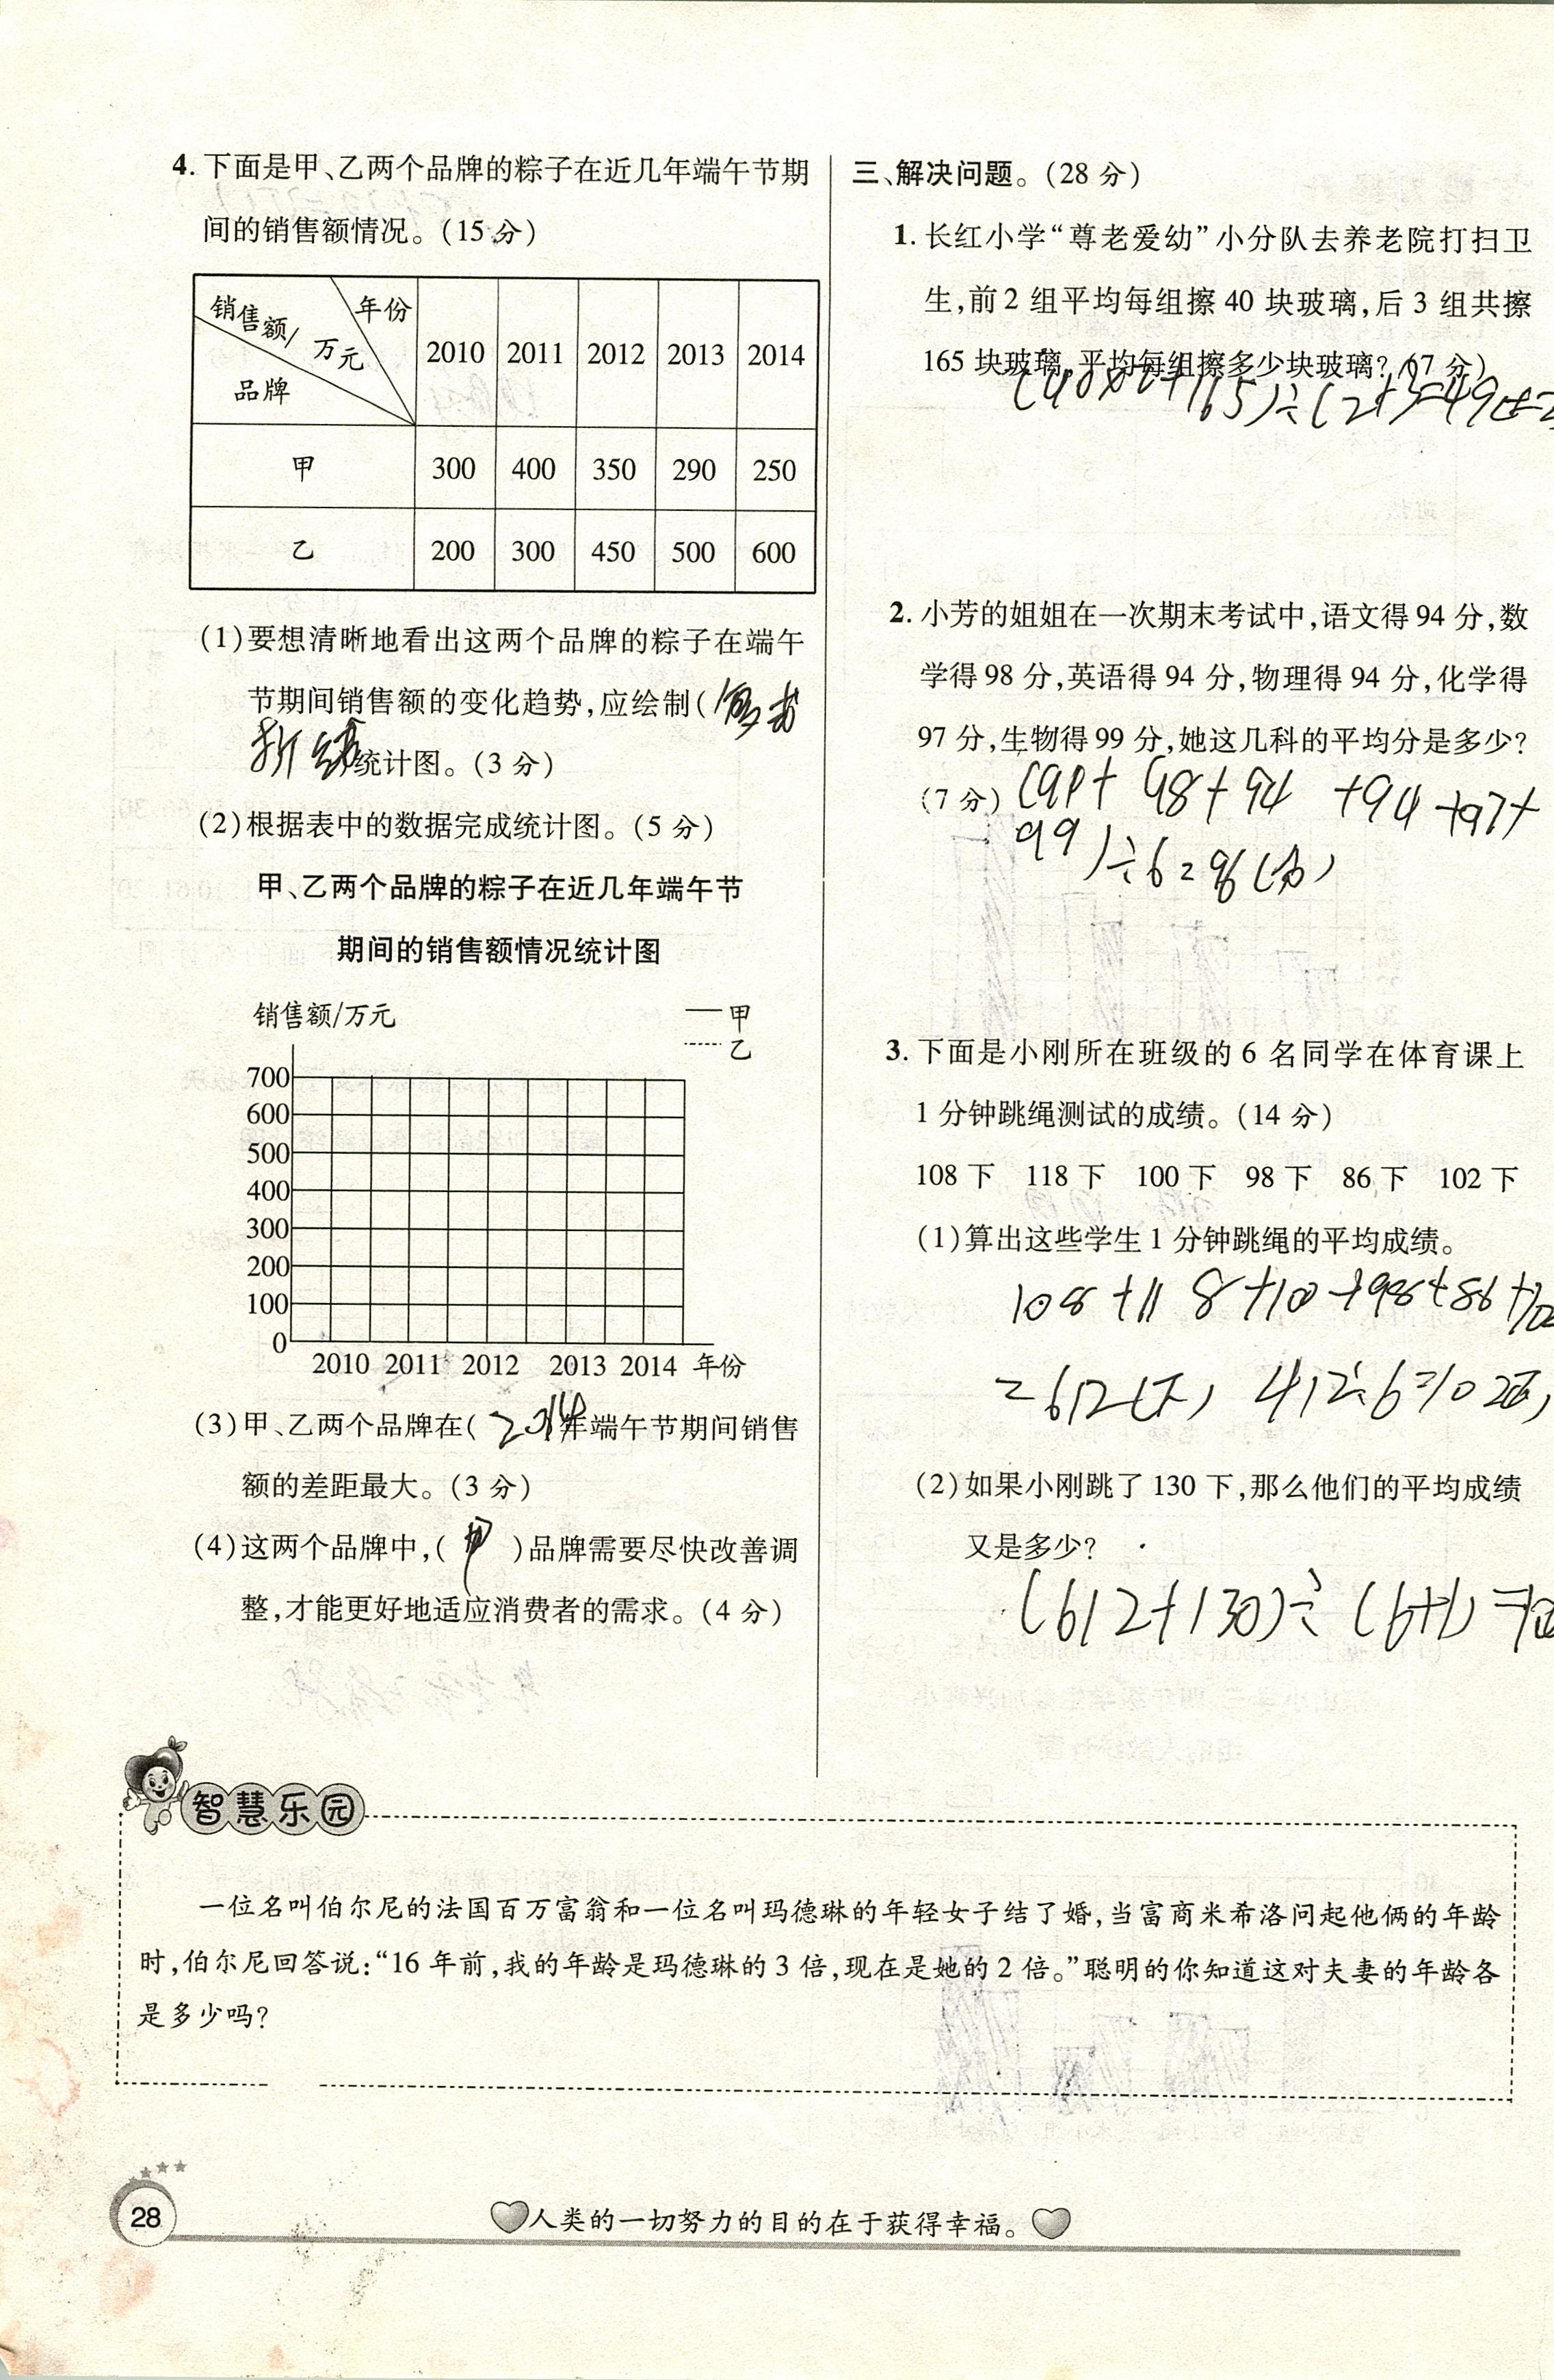 4. 下面是甲、乙两个品牌的粽子在近几年端午节期
间的销售额情况。(15分)
销售额/万元 年份
品牌
2010 2011 2012 2013 2014
甲 300 400 350 290 250
乙 200 300 450 500 600
(1)要想清晰地看出这两个品牌的粽子在端午
节期间销售额的变化趋势,应绘制(
折线)统计图。(3分)
(2)根据表中的数据完成统计图。(5分)
甲、乙两个品牌的粽子在近几年端午节
期间的销售额情况统计图
销售额/万元
甲
乙
700
600
500
400
300
200
100
0
2010 2011 2012 2013 2014 年份
(3)甲、乙两个品牌在(2014)年端午节期间销售
额的差距最大。(3分)
(4)这两个品牌中,( 甲 )品牌需要尽快改善调
整,才能更好地适应消费者的需求。(4分)
三、解决问题。(28分)
1. 长红小学“尊老爱幼”小分队去养老院打扫卫
生,前2组平均每组擦40块玻璃,后3组共擦
165块玻璃。平均每组擦多少块玻璃?(7分)
(40×2+165)÷(2+3)=49
2. 小芳的姐姐在一次期末考试中,语文得94分,数
学得98分,英语得94分,物理得94分,化学得
97分,生物得99分,她这几科的平均分是多少?
(7分) (94+98+94+94+97+
99)÷6=96(分)
3. 下面是小刚所在班级的6名同学在体育课上
1分钟跳绳测试的成绩。(14分)
108下 118下 100下 98下 86下 102下
(1)算出这些学生1分钟跳绳的平均成绩。
108+118+100+98+86+102
=612(下) 612÷6=102(下)
(2)如果小刚跳了130下,那么他们的平均成绩
又是多少?
(612+130)÷(6+1)=10
智慧乐园
一位名叫伯尔尼的法国百万富翁和一位名叫玛德琳的年轻女子结了婚,当富商米希洛问起他俩的年龄
时,伯尔尼回答说:“16年前,我的年龄是玛德琳的3倍,现在是她的2倍。”聪明的你知道这对夫妻的年龄各
是多少吗?
28
人类的一切努力的目的在于获得幸福。